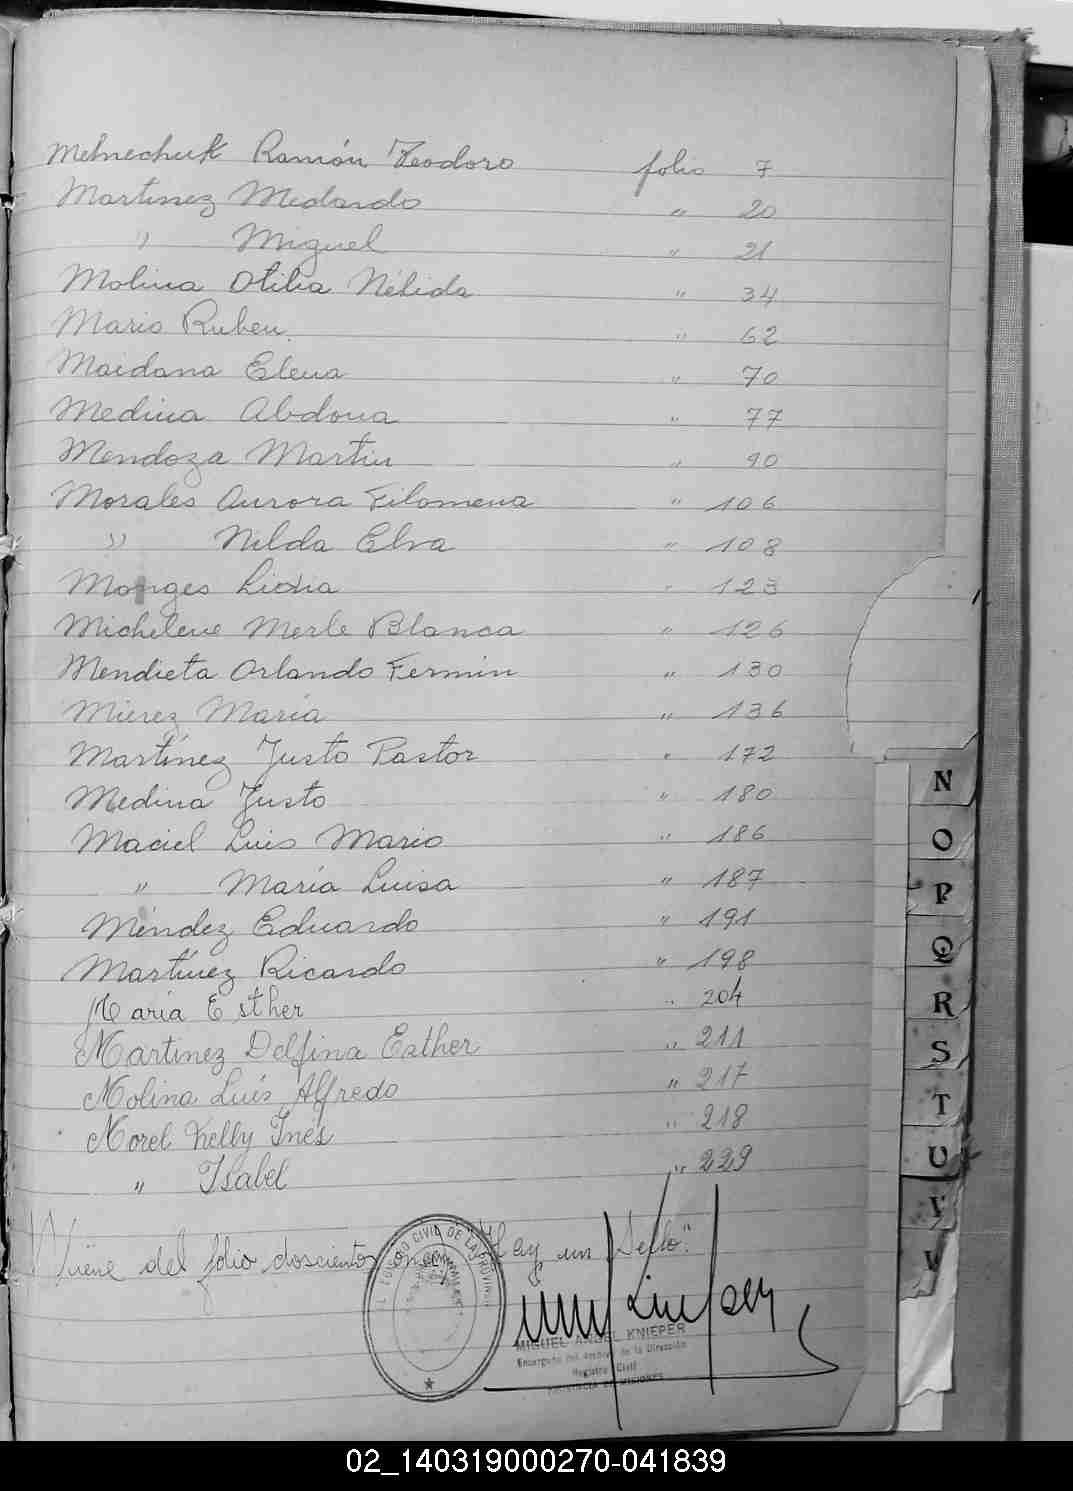 Melnechuk Ramón Teodoro folio 7
Martinez Medardo " 20
" Miguel " 21
Molina Otilia Nélida " 34
Mario Ruben. " 62
Maidana Elena " 70
Medina Abdona " 77
Mendoza Martin " 90
Morales Aurora Filomena " 106
" Nilda Elva " 108
Monges Lidia " 123
Michelene Merle Blanca " 126
Mendieta Orlando Fermin " 130
Mierez María " 136
Martínez Justo Pastor " 172
Medina Justo " 180
Maciel Luis Mario " 186
" María Luisa " 187
Méndez Eduardo " 191
Martínez Ricardo " 198
María Esther " 204
Martinez Delfina Esther " 211
Molina Luis Alfredo " 217
Morel Nelly Inés " 218
" Isabel " 229
Viene del folio doscientos once "Hay un Sello".
CIVIL DE LA PROVINCIA
MIGUEL ANGEL KNIEPER
Encargado del Archivo de la Dirección
Registro Civil
PROVINCIA DE MISIONES
N
O
P
Q
R
S
T
U
V
02_140319000270-041839